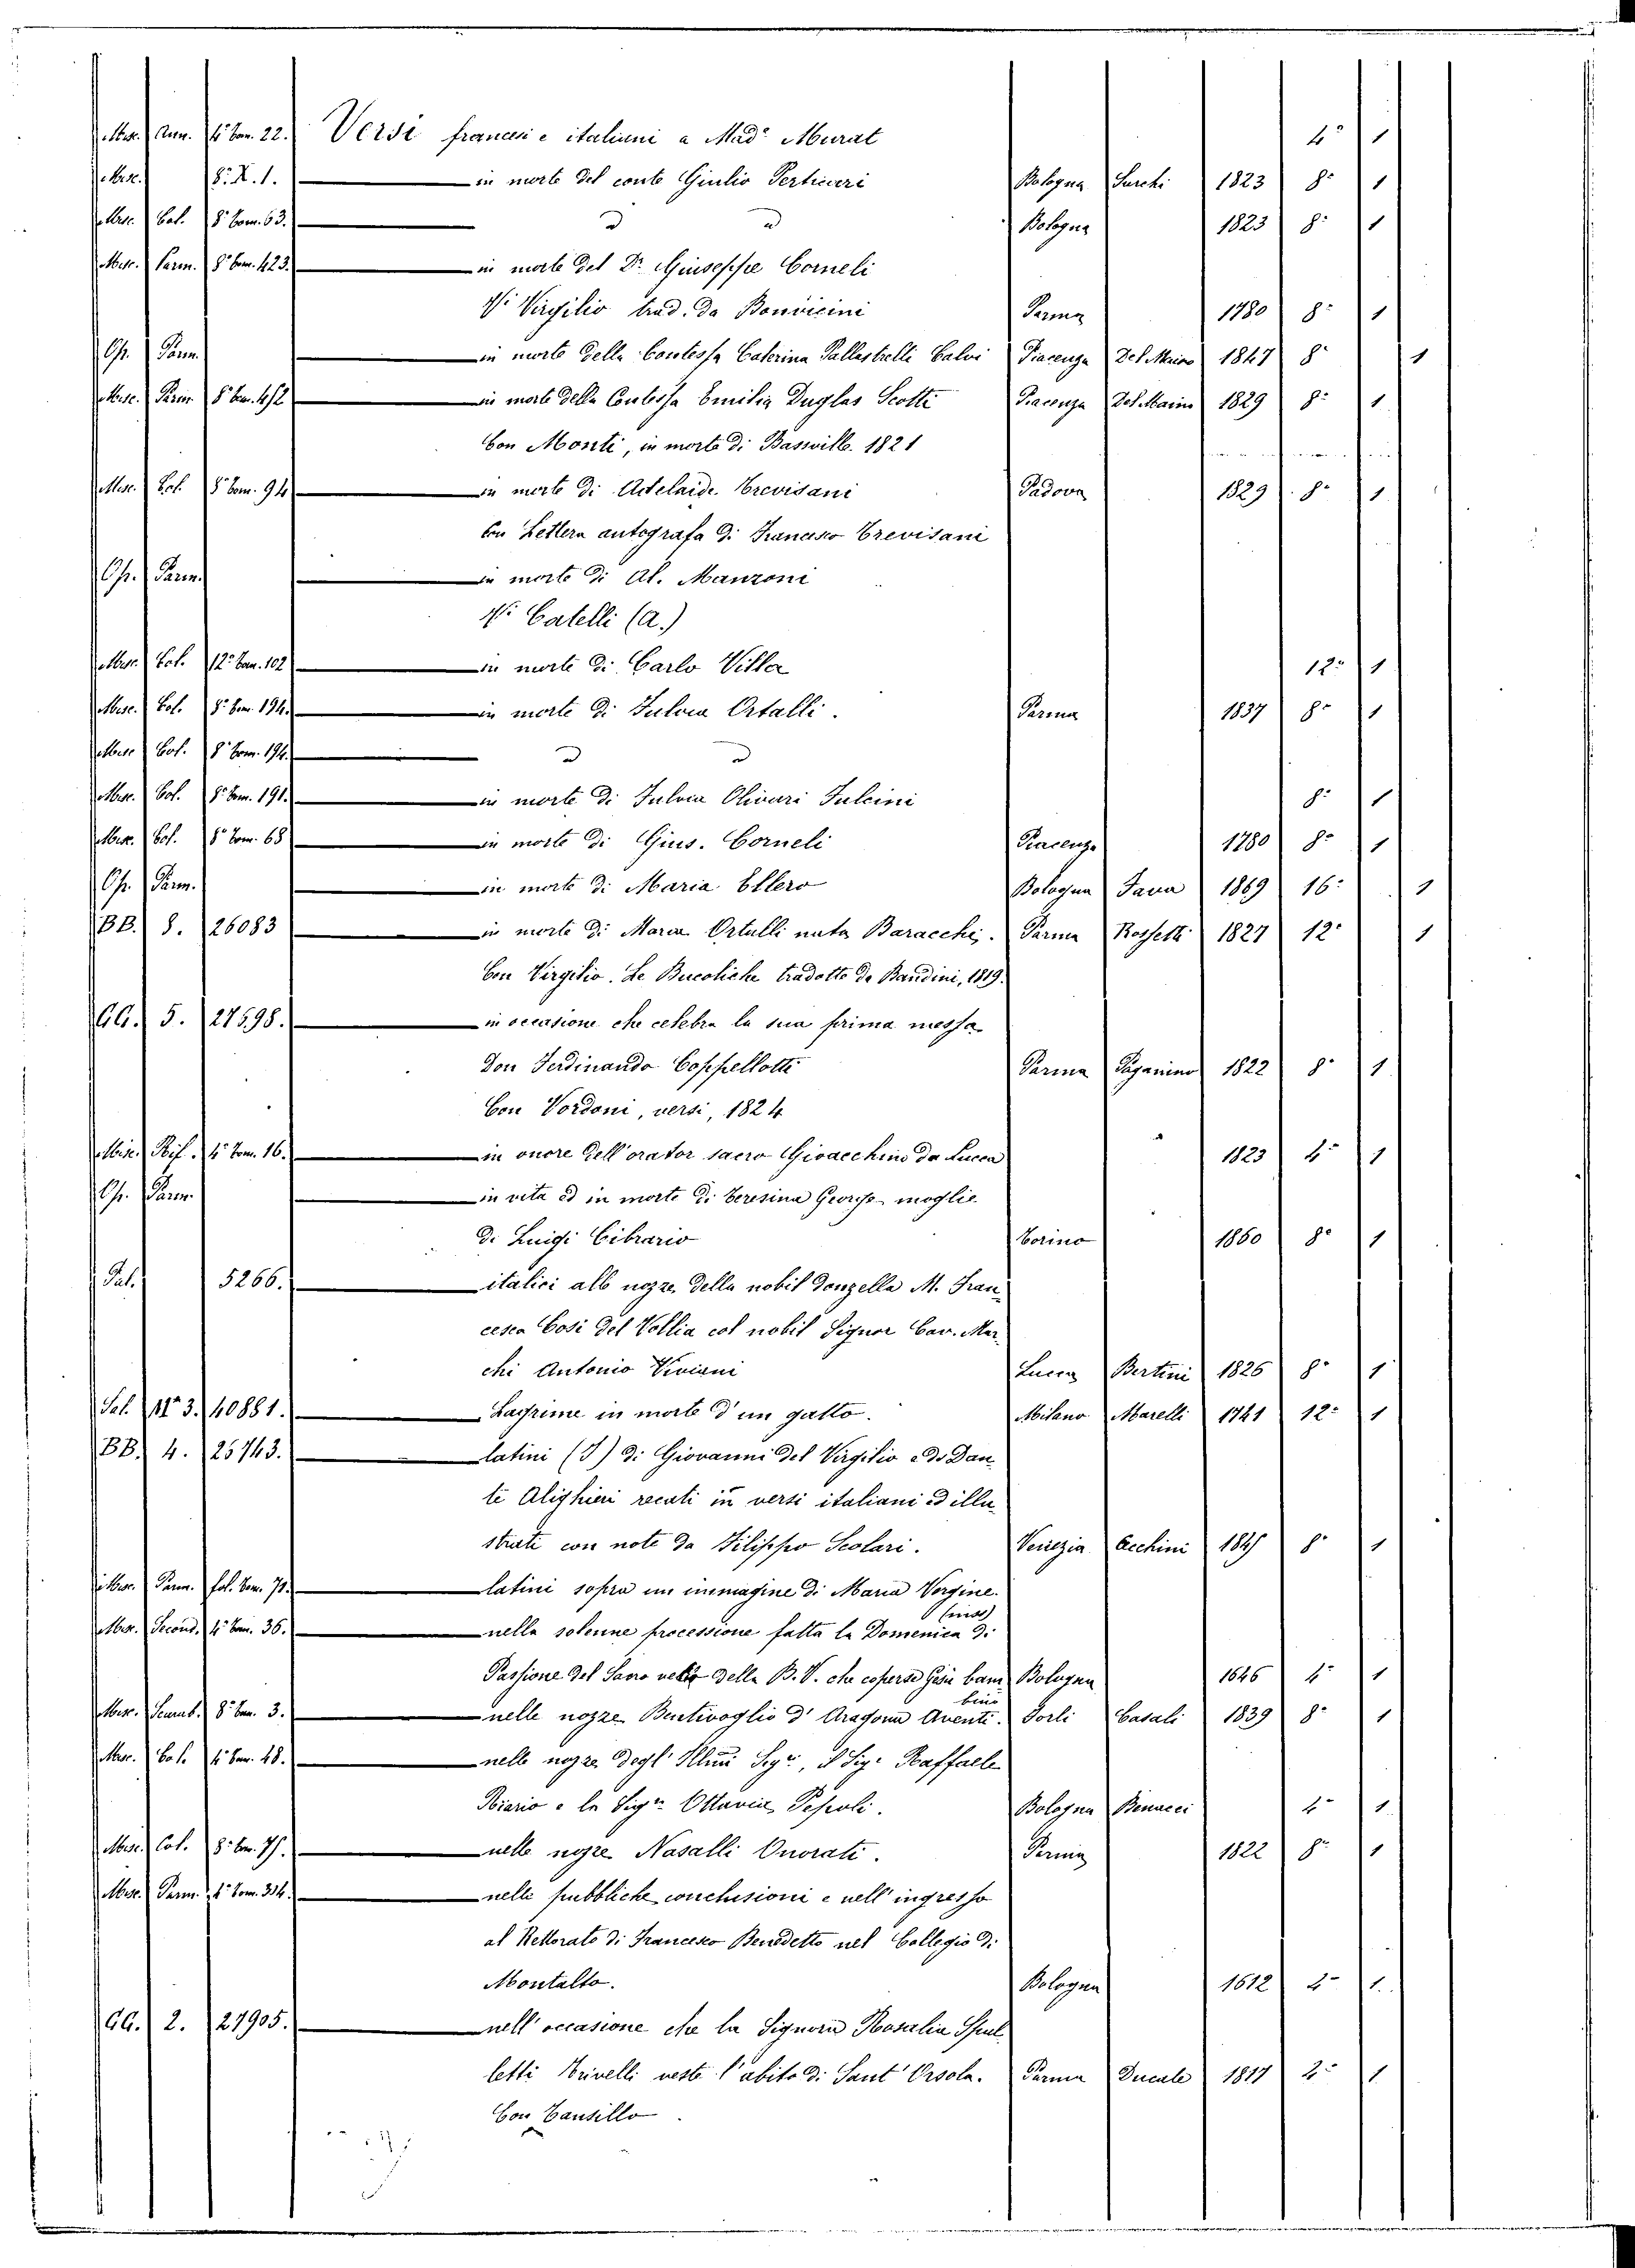 Misc. Ann. 4° Tom. 22. Versi francesi e italiani a Mad.e Murat 4° 1
Misc. 8° X. 1. — in morte del conte Giulio Perticari Bologna Turchi 1823 8° 1
Misc. Bol. 8° Tom. 63. — d d Bologna 1823 8° 1
Misc. Parm. 8° Tom. 423. — in morte del Dr. Giuseppe Corneli
Vi Virgilio trad. da Bonvicini Parma 1780 8° 1
Op. Parm. — in morte della Contessa Caterina Pallastrelli Calvi Piacenza Del Maino 1847 8° 1
Misc. Parm. 8° Tom. — in morte della Contessa Emilia Duglas Scotti Piacenza Del Maino 1829 8° 1
Con Monti, in morte di Basville. 1821
Misc. Bol. 8° Tom. 94 — in morte di Adelaide Trevisani Padova 1829 8° 1
Con Lettera autografa di Francesco Trevisani
Op. Parm. — in morte di Al. Manzoni
Vi Catelli (A.)
Misc. Bol. 12° Tom. 102 — in morte di Carlo Villa 12° 1
Misc. Bol. 8° Tom. 194. — in morte di Fulvia Ortalli. Parma 1837 8° 1
Misc. Bol. 8° Tom. 194. — d d
Misc. Bol. 8° Tom. 191. — in morte di Fulvia Olivari Fulcini 8° 1
Misc. Bol. 8° Tom. 68 — in morte di Gius. Corneli Piacenza 1780 8° 1
Op. Parm. — in morte di Maria Ellero Bologna Fava 1869 16° 1
BB. 8. 26083 — in morte di Maria Ortalli nata Baracchi. Parma Rossetti 1827 12° 1
Con Virgilio. Le Bucoliche tradotte da Bandini, 1819.
GG. 5. 27598. — in occasione che celebra la sua prima messa
Don Ferdinando Coppellotti Parma Paganino 1822 8° 1
Con Vordoni, versi, 1824
Misc. 4° Tom. 16. — in onore dell'orator sacro Giovacchino da Lucca 1823 4° 1
Op. Parm. — in vita ed in morte di Teresina moglie
di Luigi Cibrario Torino 1860 8° 1
Pal. 5266. — italici alle nozze della nobil donzella M. Fran-
cesca Cosi del Vollia col nobil Signor Cav. Mar-
chi Antonio Viviani Lucca Bertini 1826 8° 1
Pal. 3. 40881. — Lagrime in morte d'un gatto. Milano Marelli 1741 12° 1
BB. 4. 25743. — latini (I) di Giovanni del Virgilio e di Dan-
te Alighieri recati in versi italiani ed illu-
strati con note da Filippo Scolari. Venezia Cecchini 1845 8° 1
Misc. Parm. fol. Tom. 71. — latini sopra un immagine di Maria Vergine.
(miss)
Misc. Second. 4° Tom. 36. — nella solenne processione fatta la Domenica di
Passione del Sacro velo della B. V. che coperse Gesù bam Bologna 1646 4° 1
bino
Misc. 8° Tom. 3. — nelle nozze Bentivoglio d'Aragona Aventi. Forlì Casali 1839 8° 1
Misc. Bol. 4° Tom. 48. — nelle nozze degl' Illmi Sigri, il Sigr Raffaele
Riario e la Sigra Ottavia Pepoli. Bologna Benacci 4° 1
Misc. Col. 8° Tom. — nelle nozze Nasalli Onorati. Parma 1822 8° 1
Misc. Parm. 4° Tom. 314. — nelle pubbliche conclusioni e nell'ingresso
al Rettorato di Francesco Benedetto nel Collegio di
Montalto. Bologna 1612 4° 1
GG. 2. 27905. — nell'occasione che la Signora Rosalia Spal-
letti Trivelli veste l'abito di Sant'Orsola. Parma Ducale 1817 4° 1
Con Cansillo